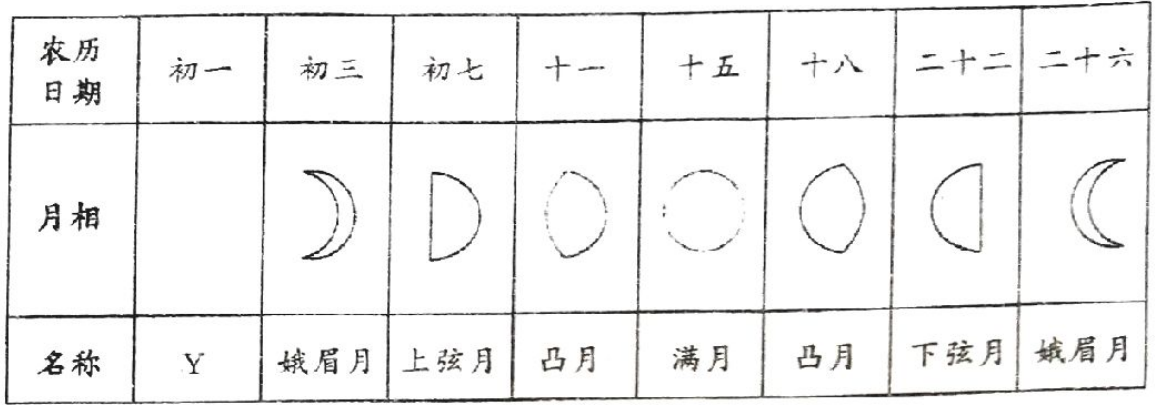 农历日期 初一 初三 初七 十一 十五 十八 二十二 二十六
月相
名称 Y 娥眉月 上弦月 凸月 满月 凸月 下弦月 娥眉月